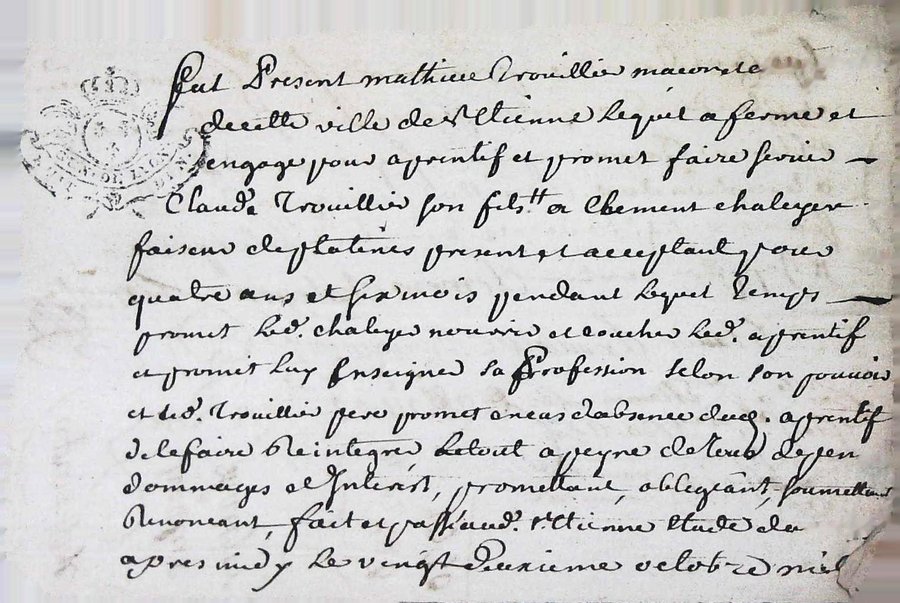 fut Present mathieu Trouillier macon de
de cette ville de st Etienne lequel a fermé et
engagé pour aprentif et promet faire servir
Claude Trouillier son fils a Clement chaleyer
faiseur de platines present et acceptant pour
quatre ans et six mois pendant lequel Temps
promet led. chaleyer nourrir et coucher led. aprentif
et promet luy Enseigner sa Profession selon son pouvoir
et led. Trouillier pere promet en cas d'absence dud. aprentif
de le faire Reintegrer le tout a peyne de tous depen
dommages et Interest, promettant, obligeant, soumettant
Renonceant, fait et passé aud. st Etienne Etude du
apres midy le vingt deuxieme octobre mil